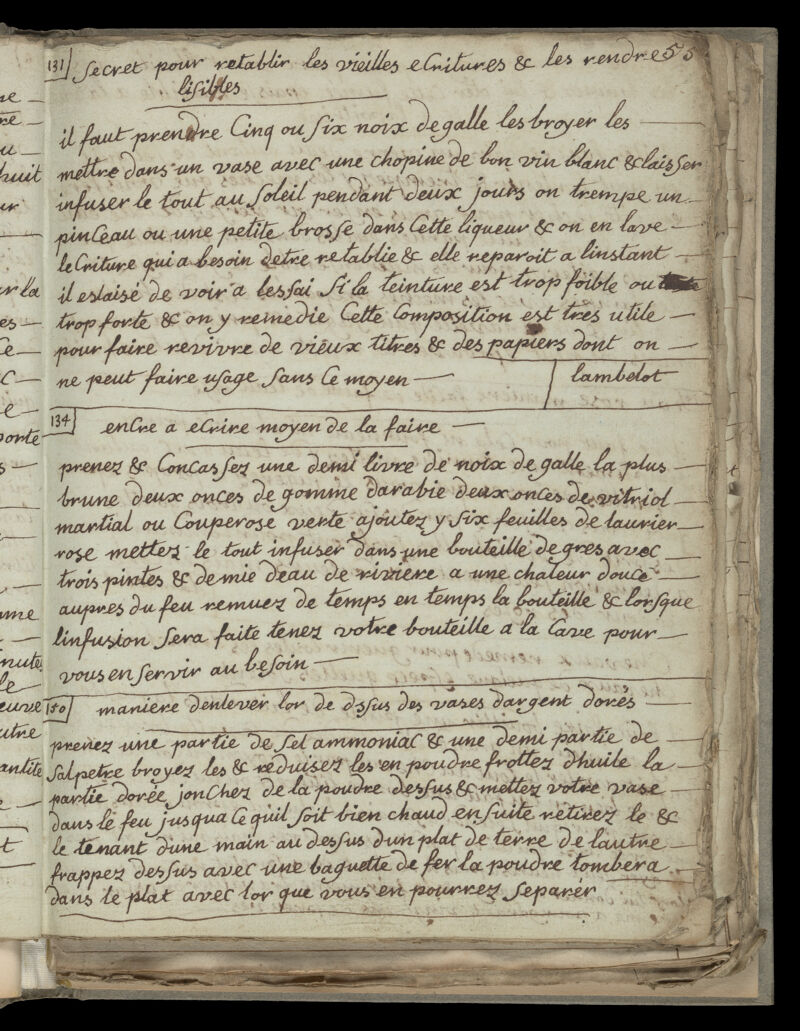 55
131 Secret pour retablir les vieilles ecritures & les rendre
lisibles
il faut prendre Cinq ou Six noix de galle les broyer les
mettre dans un vase avec une chopine de bon vin blanc & laisser
infuser le tout au Soleil pendant deux jours on trempe un
pinceau ou une petite brosse dans Cette liqueur & on en lave
lecriture qui a besoin detre retablie & elle reparoit a linstant
il est aisé de voir a lessai Si la teinture est trop foible ou
trop forte & on y remedie Cette Composition est tres utile
pour faire revivre de vieux titres & des papiers dont on
ne peut faire usage Sans Ce moyen
lambelot
134 encre a ecrire moyen de la faire
prenez & Concassez une demi livre de noix de galle la plus
brune deux onces de gomme darabie deux onces de vitriol
martial ou Couperose verte ajoutez y Six feuilles de laurier
rose mettez le tout infuser dans une bouteille de gres avec
trois pintes & demie deau de riviere a une chaleur douce
aupres du feu remuez de temps en temps la bouteille & lorsque
linfusion Sera faite tenez votre bouteille a la Cave pour
vous en Servir au besoin
150 maniere denlever lor de dssus des vases dargent dorés
prenez une partie de Sel ammoniac & une demi partie de
Salpetre broyez les & réduisez les en poudre frottez dhuile la
partie dorée jonchez de la poudre dessus & mettez votre vase
dans le feu jusqua ce quil Soit bien chaud ensuite retirez le &
le tenant dune main au dessus dun plat de terre de lautre
frappez dessus avec une baguette de fer la poudre tombera
dans le plat avec lor que vous en pourrez Separer